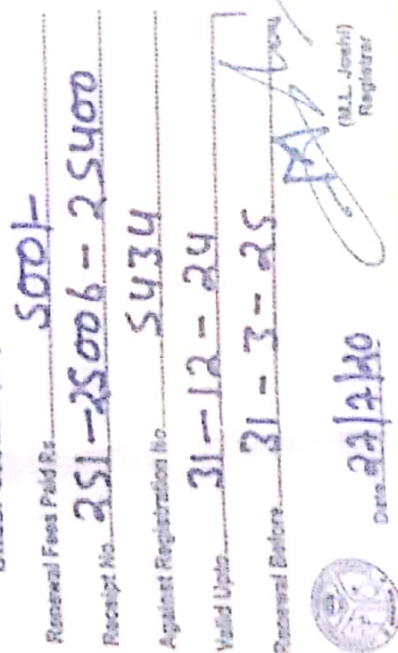 Renewal Fees Paid Rs. 500/-
Receipt No. 251-25006-25400
Against Registration No. 5434
Valid Upto 31-12-24
Renewal Before 31-3-25
Date 22/7/20
(M.L. Joshi)
Registrar